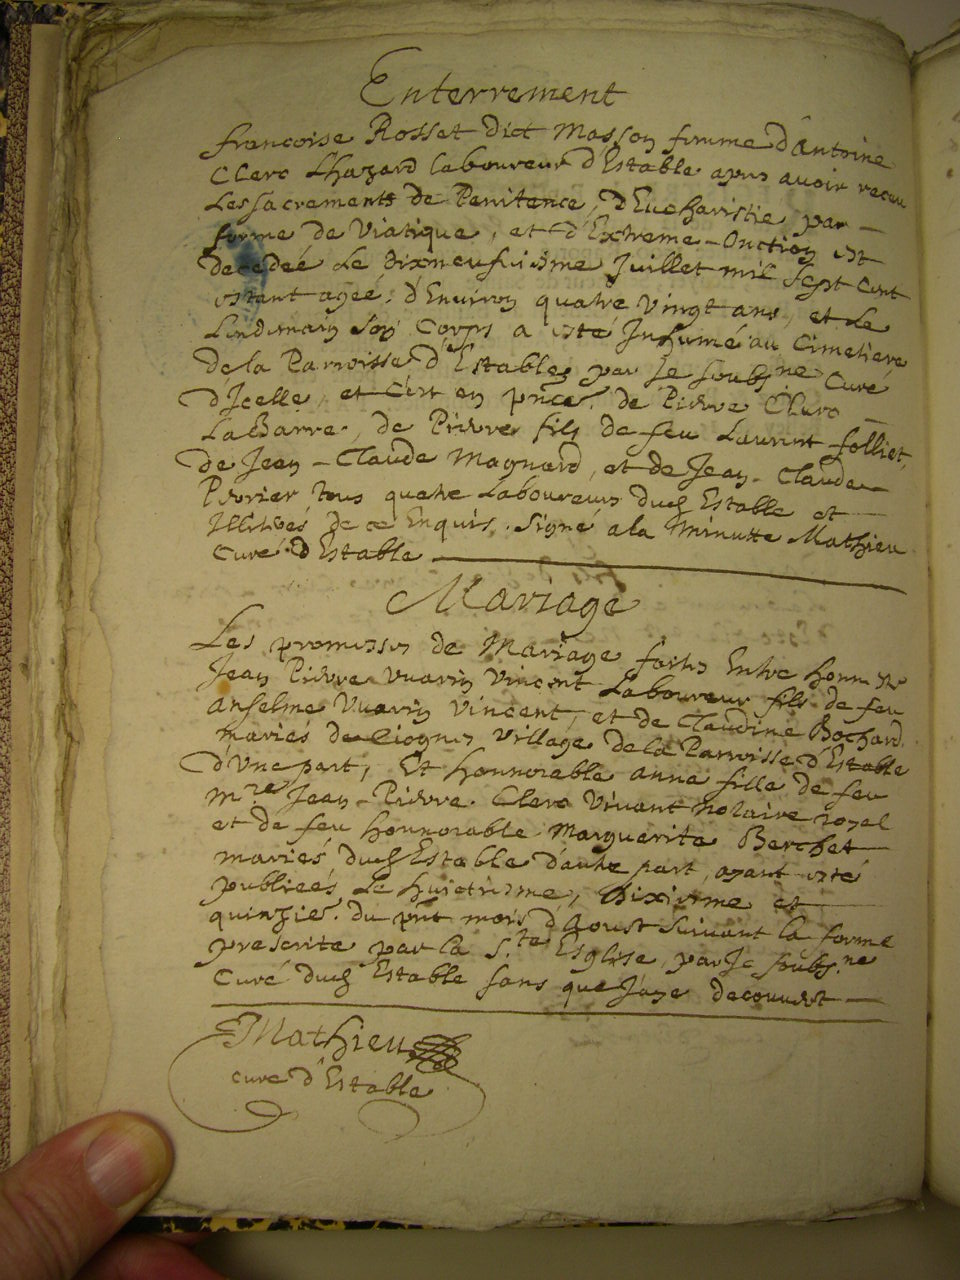 Enterrement
francoise Rosset dict Masson femme d'Antoine
Clerc Lhazard laboureur d'Estable apres avoir receu
Les sacrements de Penitence, d'Eucharistie par
forme de Viatique, et d'Extreme-Onction est
decedeé Le dixneufviesme Juillet mil sept cent
estant ageé d'Environ quatre vingt ans, et Le
Lendemain son Corps a este Inhumé au Cimetiere
de la Parroisse d'Estable, par Je soubs.ne Curé
d'Icelle, et c'est en pnce de Pierre Clerc
LaBarre, de Pierre fils de feu Laurent folliet,
de Jean-Claude Magnard, et de Jean-Claude
Perrier tous quatre Laboureurs dud Estable et
Illiterés de ce Enquis. Signé a la Minutte Mathieu
Curé d'Estable
Mariage
Les promesses de Mariage faites Entre honn.ste
Jean Pierre Vuarin Vincent Laboureur fils de feu
Anselme Vuarin Vincent, et de Claudine Bochard
mariés de village de la Parroisse d'Estable
d'Une part, Et honnorable anne fille de feu
m.re Jean-Pierre Clerc Vivant notaire royal
et de feu honnorable Marguerite Berthet
mariés dud Estable d'autre part, ayant esté
publieés Le huictiesme, dixiesme et
quinzie. du pnt mois d'Aoust suivant la forme
prescrite par la S.te Esglise, par Je soubs.ne
Curé dud Estable sans que J'aye decouvert
Mathieu
curé d'Estable